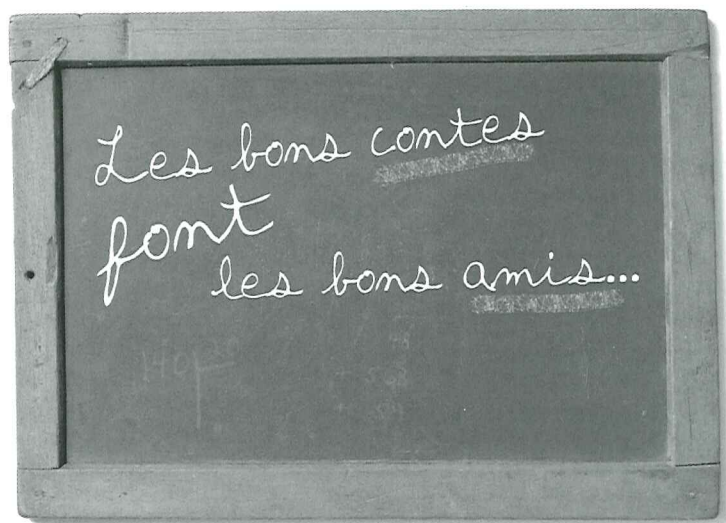 Les bons contes
font
les bons amis...